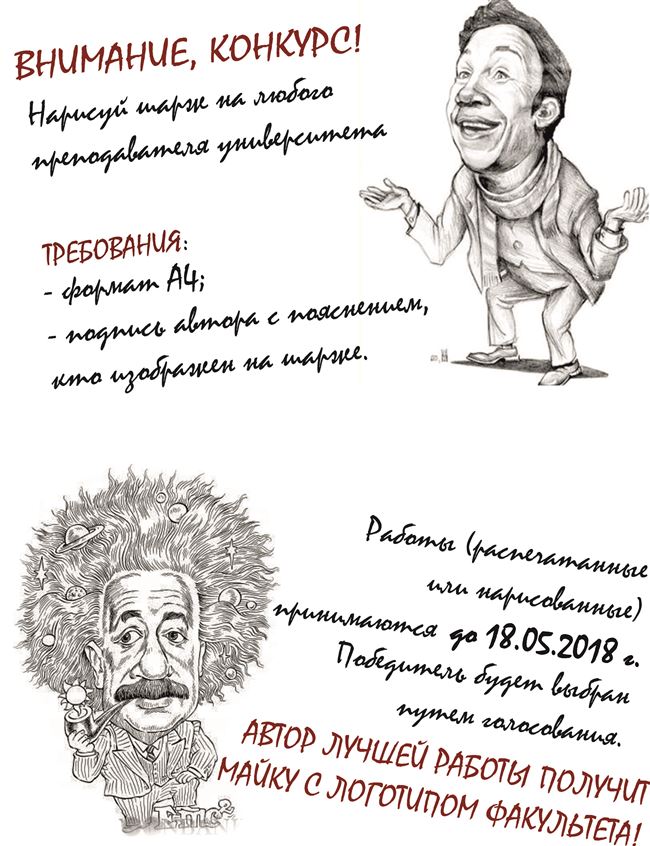 ВНИМАНИЕ, КОНКУРС!
Нарисуй шарж на любого
преподавателя университета
ТРЕБОВАНИЯ:
- формат А4;
- подпись автора с пояснением,
кто изображен на шарже.
Работы (распечатанные
или нарисованные)
принимаются до 18.05.2018 г.
Победитель будет выбран
путем голосования.
АВТОР ЛУЧШЕЙ РАБОТЫ ПОЛУЧИТ
МАЙКУ С ЛОГОТИПОМ ФАКУЛЬТЕТА!
E=mc²